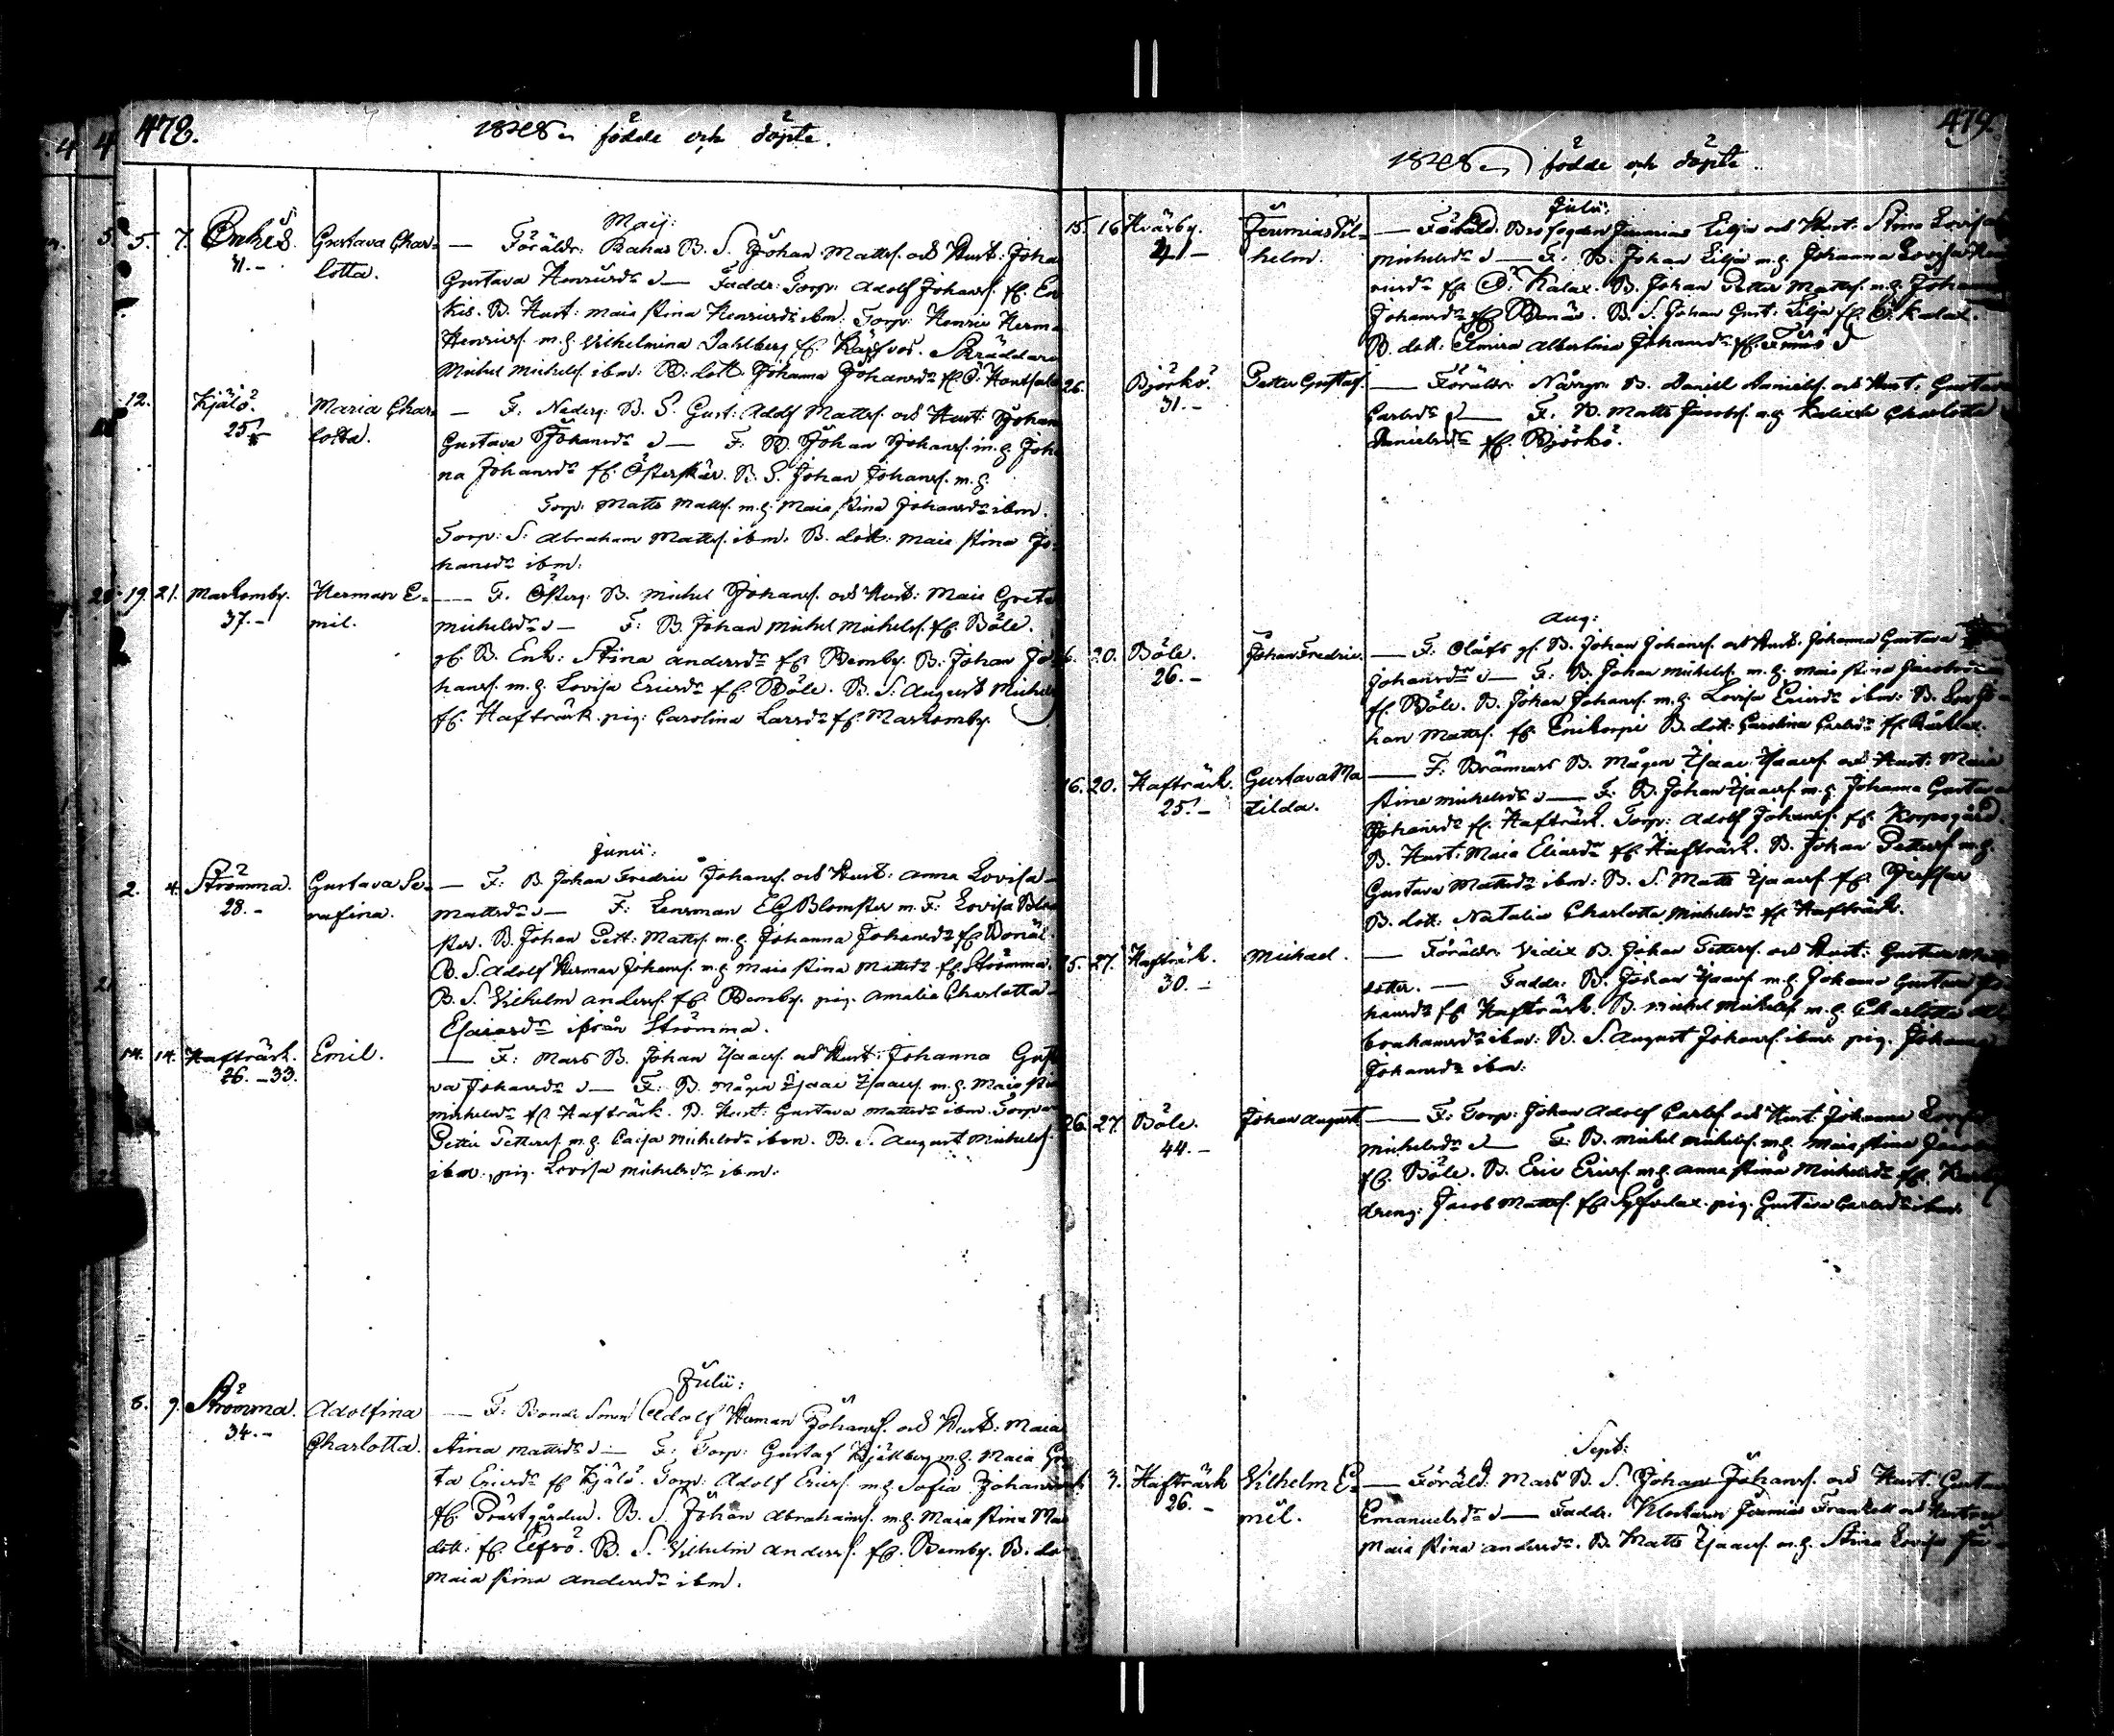 478.
1848 födde och döpte.
Maij:
5. 7. Enkis. Gustava Char= — Föräldr: Bahas B. S. Johan Matts. och Hust: Joha
31.- lotta. Gustava Henricsdr — Faddr: Torp: Adolf Johans. fr. En
kis. B. Hust: Maia Stina Henricsdr ibm: Torp: Henric Herma
Henrics. m.h. Vilhelmina Dahlberg fr. Skräddare
Michel Michels. ibm: B. dott: Johanna Johansdr fr.
12. Kjälö. Maria Char — F: Nederg: B. S. Gust: Adolf Matts. och Hust: Johan
25.- lotta. Gustava Johansdr — F: B. Johan Johans. m.h. Joh
na Johansdr fr. Österskär. B. S. Johan Johans. m.h.
Torp: Matts Matts. m.h. Maia Stina Johansdr ibm.
Torp: S: Abraham Matts. ibm: B. dott: Maia Stina Jo-
hansdr ibm:
19. 21. Markomby. Herman E= — F. Österg: B. Michel Johans. och Hust: Maia Greta
37.- mil. Michelsdr — F: B. Johan Michel Michels. fr. Böle.
gl. B. Enk: Stina Andersdr fr. Bemby. B: Johan Jo
hans. m.h. Lovisa Ericsdr fr. Böle. B. S: August Michels
fr. Hafträsk. pig: Carolina Larsdr fr. Markomby.
Junii:
2. 4. Strömma. Gustava Se= — F: B. Johan Fredric Johans. och Hust: Anna Lovisa
28.- rafina. Mattsdr — F: Lensman EG Blomster m. F: Lovisa Blom
ster. B. Johan Pett: Matts. m.h. Johanna Johansdr fr. Bonäs.
B. S. Adolf Herman Johans. m.h. Maia Stina Mattsdr fr. Strömma.
B. S. Vilhelm Anders. fr. Bemby. pig. Amalia Charlotta
Esaiasdr ifrån Strömma.
14. 14. Hafträsk. Emil. — F: Mars B. Johan Isaacs. och Hust: Johanna Gusta
26.-33. va Johansdr — F: B. Mågen Isaac Isaacs. m.h. Maia Stina
Michelsdr fr. Hafträsk. B. Hust: Gustava Mattsdr ibm. Torp
Petter Petters. m.h. Caisa Michelsdr ibm. B. S. August Michels.
ibm., pig. Lovisa Michelsdr ibm:
Julii:
6. 9. Strömma. Adolfina — F: Bonde Sonen Adolf Herman Johans. och Hust: Maia
34.- Charlotta. Stina Mattsdr — F: Torp: Gustaf m.h. Maia Gre
ta Ericsdr fr. Kjälö. Torp: Adolf Erics. m.h. Sofia Johansdr
fr. Prästgården. B. S. Johan Abrahams. m.h. Maia Stina Ma
dott: fr. B. S. Vilhelm Anders. fr. Bemby. B. do
Maia Stina Andersdr ibm.
479.
1848 födde och döpte.
Julii:
15. 16 Kvärby. Jeremias Vil= — Föräld: Jeremias Lilja och Hust: Stina Lovisa
21- helm. Michelsdr — F: B. Johan Lilja m.h. Johanna Lovisa Hen
ricsdr fr. Ö. Kalax. B. Johan Petter Matts. m.h. Johanna
Johansdr fr. Bonäs. B. S. Johan Gust: Lilja fr. Ö. Kalax.
B. dott: Elmira Albertina Johansdr fr.
26. Björkö. Petter Gustaf. — Föräldr: B. Daniel Daniels. och Hust: Gustava
31.- Carlsdr — F. B. Matts Jacobs. m.h. Charlotta
Danielsdr fr. Björkö.
Aug:
20. Böle. Johan Fredric. — F: Olofs gl. B. Johan Johans. och Hust. Johanna Gustava
26.- Johansdr — F: B. Johan Michels. m.h. Maia Stina Jacobsdr
fr. Böle. B. Johan Johans. m.h. Lovisa Ericsdr ibm: B. Son Jo
han Matts. fr. B. dott: Carolina Carlsdr fr.
16. 20. Hafträsk. Gustava Ma — F: Brännars B. Mågen Isaac Isaacs. och Hust: Maia
25.- tilda. Stina Michelsdr — F: B. Johan Isaacs. m.h. Johanna Gustava
Johansdr fr. Hafträsk. Torp: Adolf Johans. fr. Korpogård.
B. Hust: Maia Eliasdr fr. Hafträsk. B. Johan Petters. m.h.
Gustava Mattsdr ibm: B. S. Matts Isaacs. fr.
B. dott: Natalia Charlotta Michelsdr fr. Hafträsk.
25. 27. Hafträsk. Michael. — Föräldr: Vedix B. Johan Petters. och Hust: Gustava Matts
30.- dotter. — Faddr: B. Johan Isaacs. m.h. Johanna Gustava Jo
hansdr fr. Hafträsk. B. Michel Michels. m.h. Charlotta A
brahamsdr ibm: B. S. August Johans. ibm: pig. Johanna
Johansdr ibm:
26. 27. Böle. Johan August — F: Torp: Johan Adolf Carls. och Hust: Johanna Lovisa
44.- Michelsdr — F. B. Michel Michels. m.h. Maia Stina Jacobs
fr. Böle. B. Eric Erics. m.h. Anna Stina Michelsdr fr.
dreng: Jacob Matts. fr. pig. Gustava Carlsdr ibm:
Sept:
3. Hafträsk Vilhelm E= — Föräld: Mars B. S. Johan Johans. och Hust: Gustava
26.- mil. Emanuelsdr — Faddr: Klockaren Jeremias Frankell och Hustrun
Maia Stina Andersdr. B. Matts Isaacs. m.h. Stina Lovisa